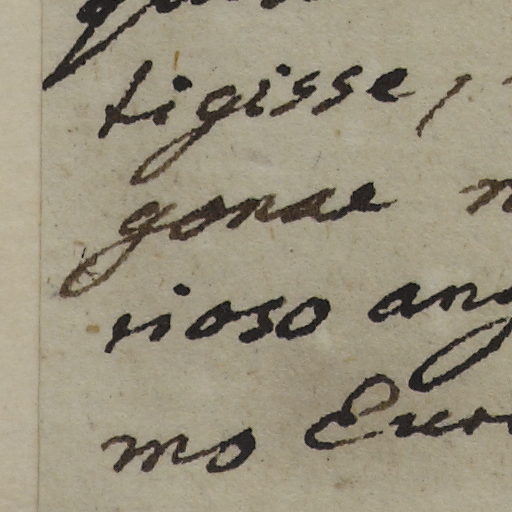 tigisse,
gonae
rioso ang
mo Euro